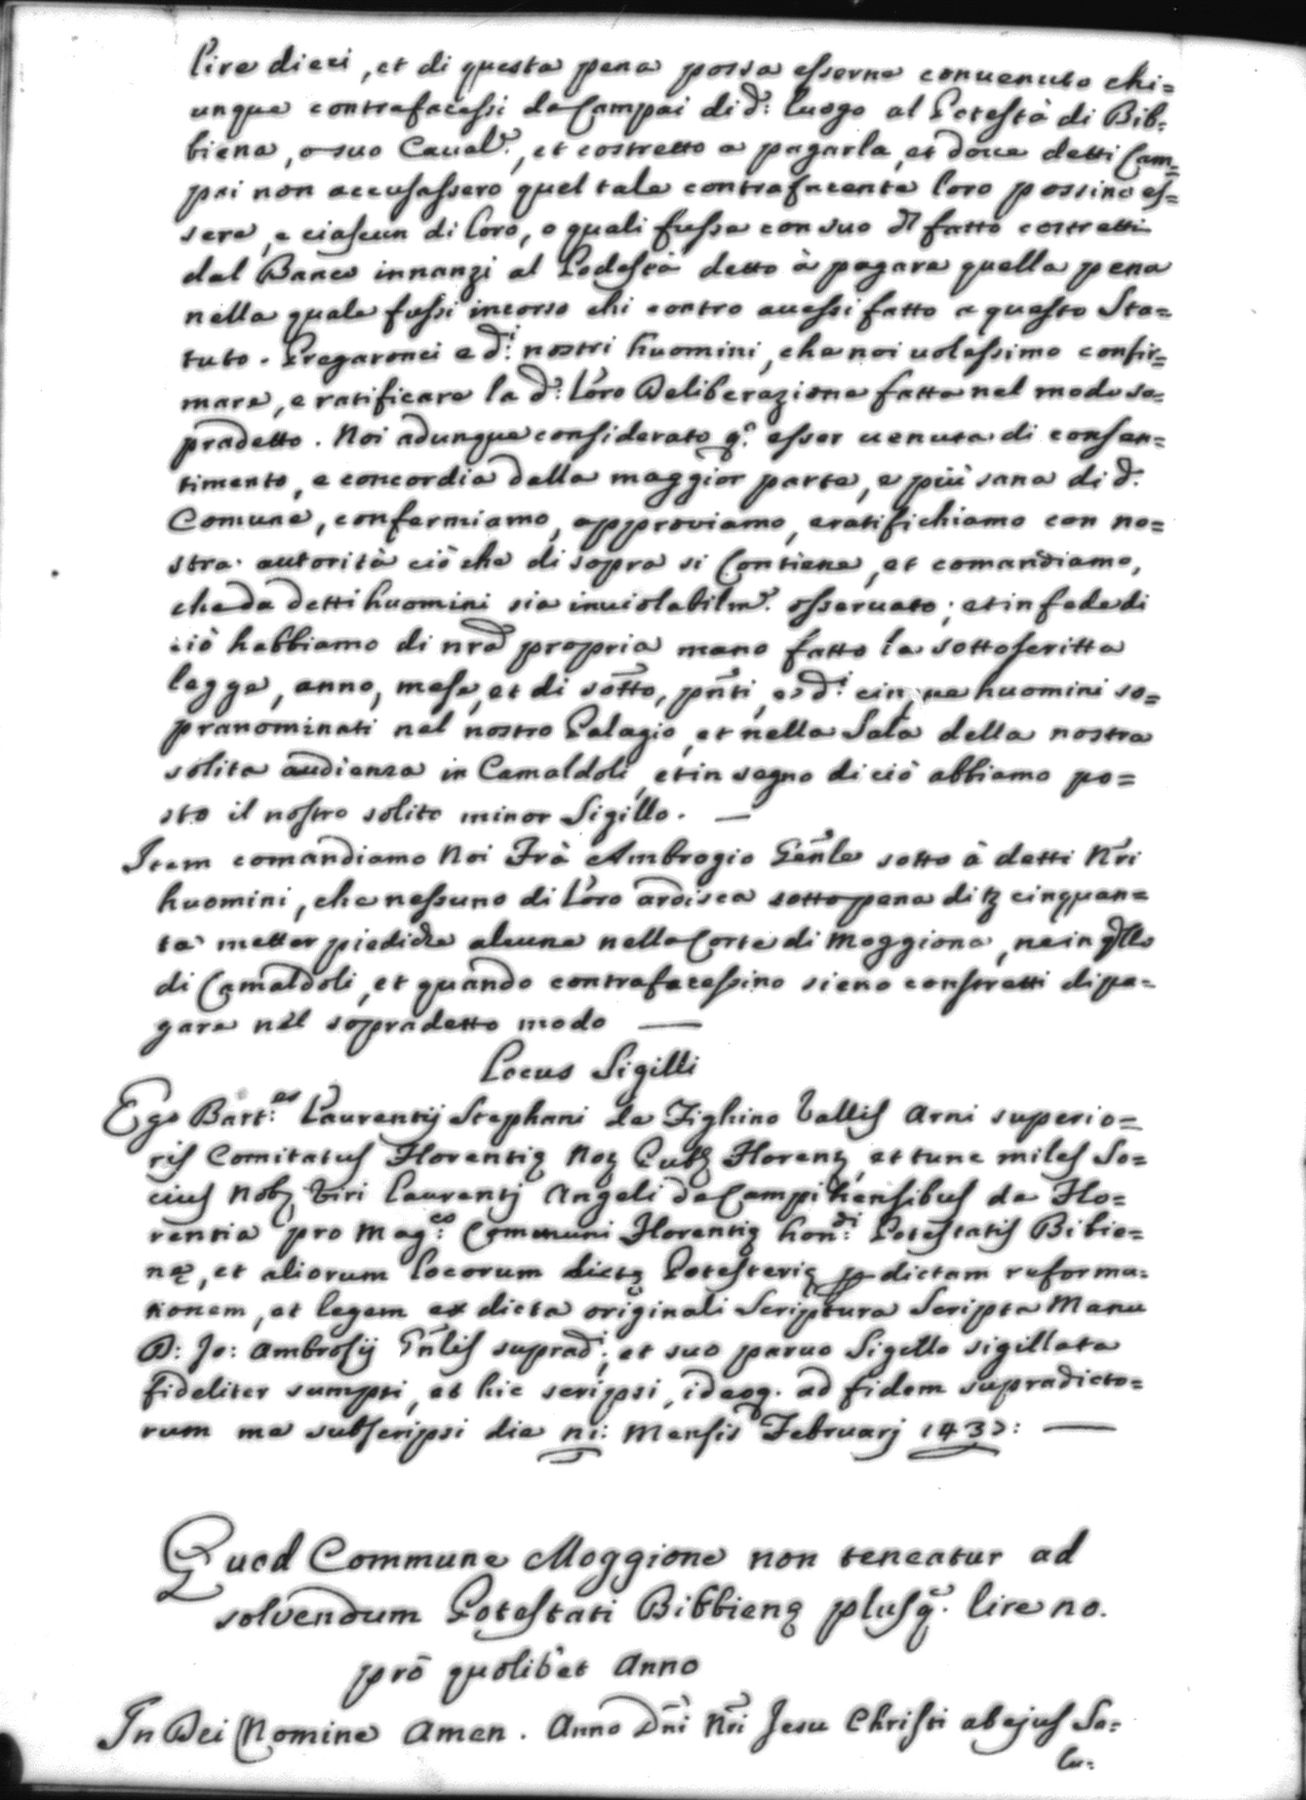 lire dieci, et di questa pena possa esserne conuenuto chi=
unque contrafacessi da Campai di d.º luogo al Potestà di Bib=
biena, o suo Caual.e, et costretto a pagarla, et doue detti Cam=
pai non accusassero quel tale contrafacente loro possino es=
sere, e ciascun di loro, o quali fusse con suo fatto costretti
dal Banco innanzi al Podestà detto à pagare quella pena
nella quale fussi incorso chi contro auessi fatto a questo Sta=
tuto. Pregaronci e d.i nostri huomini, che noi uolessimo confir=
mare, e ratificare la d.a loro Deliberazione fatta nel modo so=
pradetto. Noi adunque considerato q.o esser uenuta di consen=
timento, e concordia della maggior parte, e più sana di d.o
Comune, confermiamo, approviamo, e ratifichiamo con no=
stra autorità ciò che di sopra si Contiene, et comandiamo,
che da detti huomini sia inuiolabilm.e osseruato; et in fede di
ciò habbiamo di nrã propria mano fatto la sottoscritta
legge, anno, mese, et di sotto, pñti, e d.i cinque huomini so=
pranominati nel nostro Palagio, et nella Sala della nostra
solita audienza in Camaldoli, et in segno di ciò abbiamo po=
sto il nostro solito minor Sigillo. —
Item comandiamo Noi Frà Ambrogio Genle sotto à detti Nri
huomini, che nessuno di loro ardisca sotto pena di ₤ cinquan=
ta metter piedi che alcune nella Corte di Moggiona, ne in qllo
di Camaldoli, et quando contrafacessino sieno constretti di pa=
gare nel sopradetto modo —
Locus Sigilli
Ego Bart:es Laurentij Stephani de Fighino Vallis Arni superio=
ris Comitatus Florentię Noz Pubz Florenz, et tunc miles So=
cius Nobz Viri Laurentj Angeli de Campi hensibus de Flo=
rentia pro Mag:co Communi Florentię hon:di Potestatis Bibie=
nę, et aliorum locorum dictę Potesterię p dictam reforma=
tionem, et legem ex dicta originali Scriptura Scripta Manu
D: Jo: Ambrosij Gnlis suprad.i, et suo paruo Sigillo sigillata
fideliter sumpsi, et hic scripsi, ideoq. ad fidem supradicto=
rum me subscripsi die ni: Mensis Februarj 1437: —
Quod Commune Moggione non teneatur ad
solvendum Potestati Bibbienę plusq. lire no.
pro quolibet Anno
In Dei Nomine Amen. Anno Dñi Nri Jesu Christi ab ejus Sa=
lu=